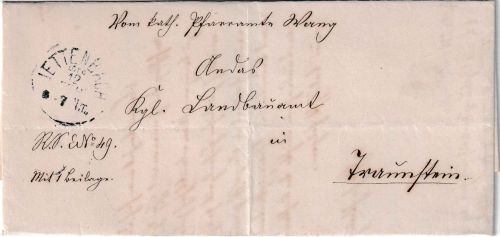 Vom kath. Pfarramte Wang
JETTENBACH
12
7
An das
Kgl. Landbauamt
in
R.S. E.No 49.
Mit 1 Beilage.
Traunstein.